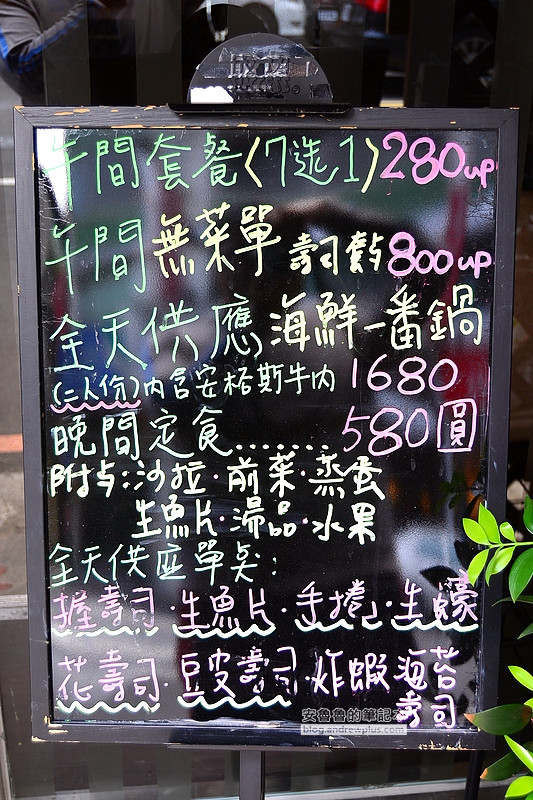 午間套餐〈7选1〉280up
午間無菜單 壽司套点800up
全天供應 海鮮一番鍋
(二人份)內含安格斯牛肉 1680
晚間定食.......580圓
附与:沙拉·前菜·蒸蛋
生魚片·湯品·水果
全天供应單矣:
握壽司·生魚片·手捲·生蠔
花壽司·豆皮壽司·炸蝦海苔
壽司
安魯魯的筆記本
blog.andrewplus.com